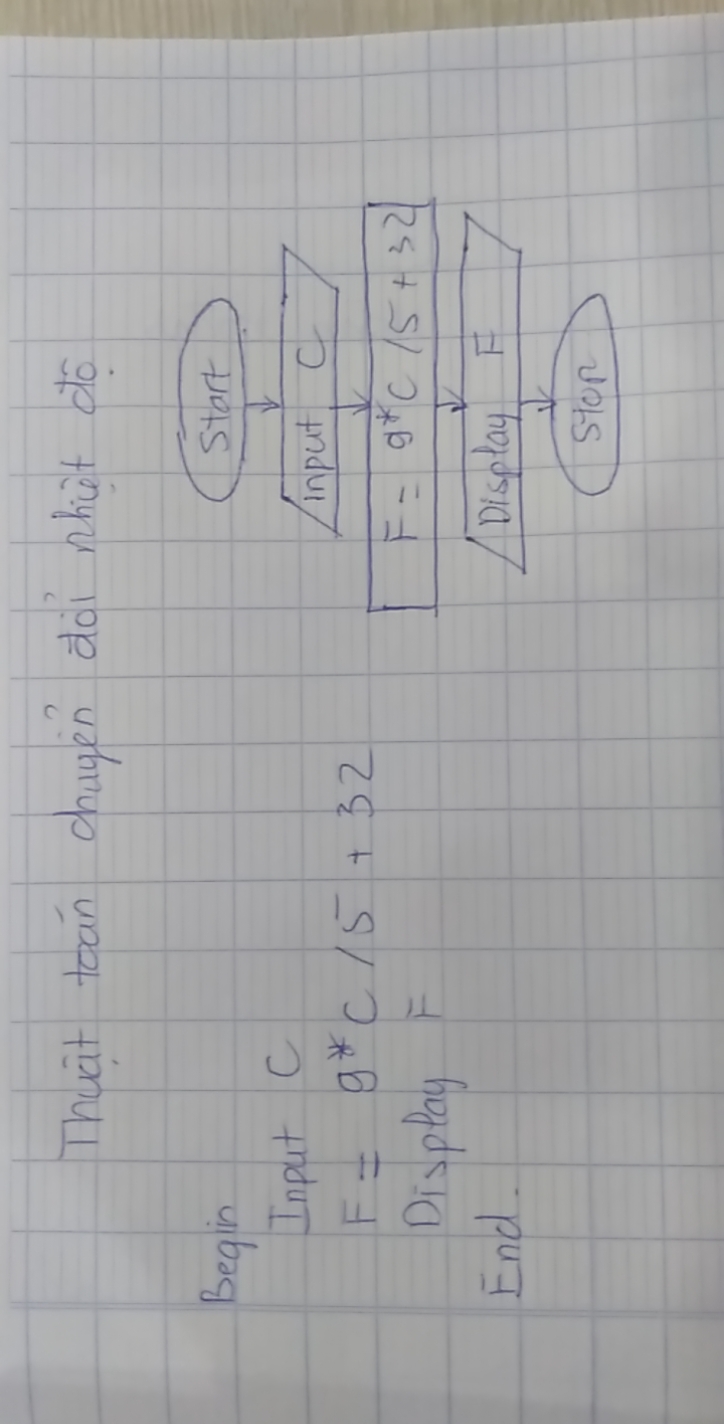 Thuật toán chuyển đổi nhiệt độ
Begin
Input C
F = 9*C/5 + 32
Display F
End.
Start
input C
F = 9*C/5+32
Display F
Stop